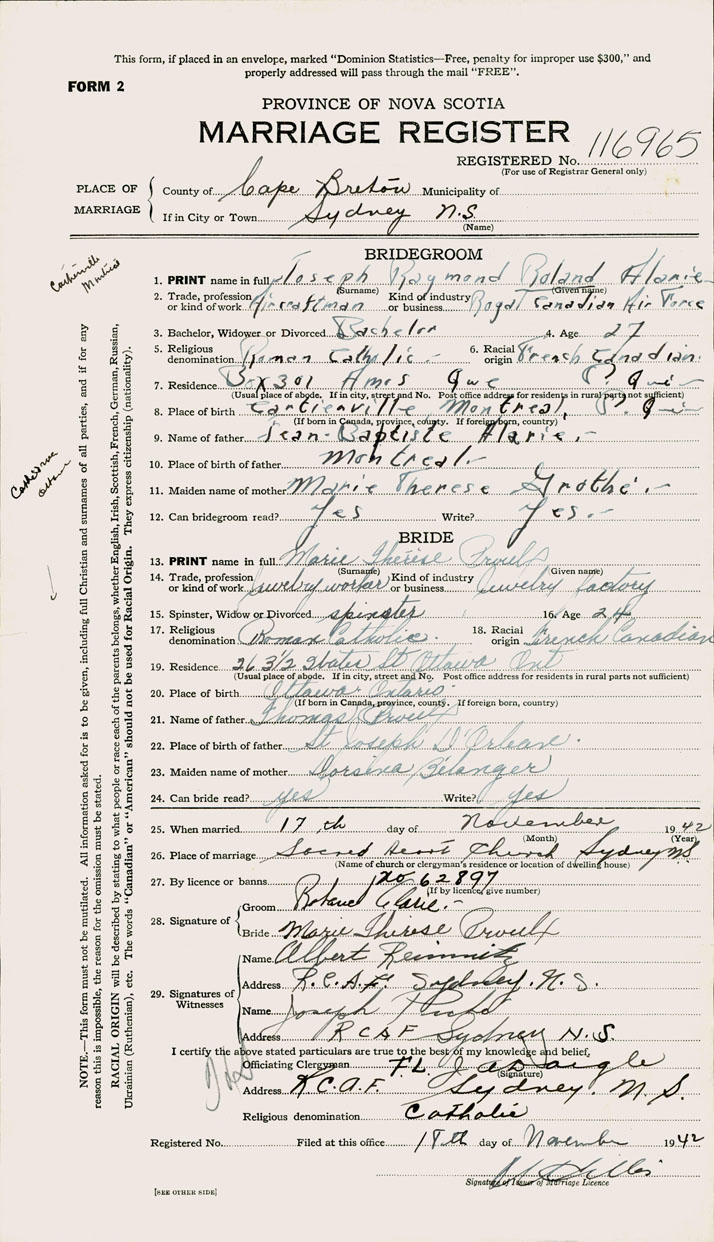 This form, if placed in an envelope, marked "Dominion Statistics—Free, penalty for improper use $300," and
properly addressed will pass through the mail "FREE".
FORM 2
PROVINCE OF NOVA SCOTIA
MARRIAGE REGISTER
REGISTERED No. 116965
(For use of Registrar General only)
PLACE OF MARRIAGE
County of Cape Breton Municipality of
If in City or Town Sydney N.S.
(Name)
BRIDEGROOM
1. PRINT name in full Joseph Raymond Roland Alarie
(Surname) (Given name)
2. Trade, profession or kind of work Aircraftman Kind of industry or business Royal Canadian Air Force
3. Bachelor, Widower or Divorced Bachelor 4. Age 27
5. Religious denomination Roman Catholic.- 6. Racial origin French Canadian.
7. Residence Box 301 Amos Que P.
(Usual place of abode. If in city, street and No. Post office address for residents in rural parts not sufficient)
8. Place of birth Cartierville Montreal, P.
(If born in Canada, province, county. If foreign born, country)
9. Name of father Jean-Baptiste Alarie.-
10. Place of birth of father Montreal.-
11. Maiden name of mother Marie Therese Grothé.-
12. Can bridegroom read? Yes Write? Yes.-
BRIDE
13. PRINT name in full Marie Thérèse Proulx
(Surname) (Given name)
14. Trade, profession or kind of work Jewelry worker Kind of industry or business Jewelry factory
15. Spinster, Widow or Divorced spinster 16. Age 24
17. Religious denomination Roman Catholic. 18. Racial origin French Canadian
19. Residence 263 1/2 St Ottawa Ont
(Usual place of abode. If in city, street and No. Post office address for residents in rural parts not sufficient)
20. Place of birth Ottawa Ontario.
(If born in Canada, province, county. If foreign born, country)
21. Name of father Thomas Proulx
22. Place of birth of father St Joseph D'Orleans.
23. Maiden name of mother Bélanger
24. Can bride read? yes Write? yes
25. When married 17th day of November 1942
(Month) (Year)
26. Place of marriage Sacred Heart Church Sydney N.S.
(Name of church or clergyman's residence or location of dwelling house)
27. By licence or banns no 62897
(If by licence, give number)
28. Signature of
Groom Roland Alarie.-
Bride Marie Thérèse Proulx
29. Signatures of Witnesses
Name Albert
Address R.C.A.F. Sydney. N.S.
Name Joseph
Address RCAF Sydney N.S.
I certify the above stated particulars are true to the best of my knowledge and belief,
Officiating Clergyman F.L. J. A. Daigle
(Signature)
Address R.C.A.F. Sydney. N.S.
Religious denomination Catholic
Registered No. Filed at this office 18th day of November 1942
Signature of Issuer of Marriage Licence
[SEE OTHER SIDE]
Cartierville
Montreal
NOTE.—This form must not be mutilated. All information asked for is to be given, including full Christian and surnames of all parties, and if for any
reason this is impossible, the reason for the omission must be stated.
RACIAL ORIGIN will be described by stating to what people or race each of the parents belongs, whether English, Irish, Scottish, French, German, Russian,
Ukrainian (Ruthenian), etc. The words "Canadian" or "American" should not be used for Racial Origin. They express citizenship (nationality).